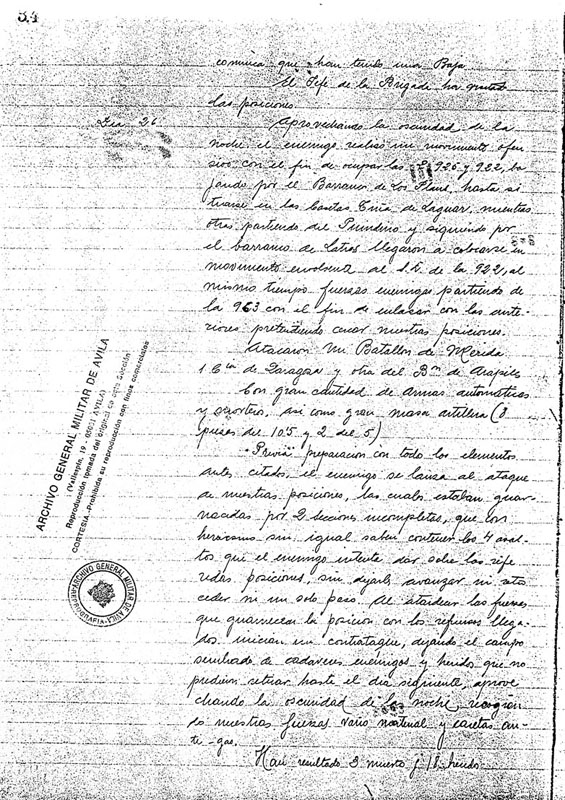 34
comunica que han tenido una Baja
El Jefe de la Brigada ha
las posiciones.
Dia 26
Aprovechando la oscuridad de la
noche el enemigo realizó un movimiento ofen
sivo con el fin de ocupar las 926 y 922, ba
jando por el Barranco de Los Plans, hasta si
tuarse en las Casetas de Laguar, mientras
otras partiendo del y siguiendo por
el barranco de llegaron a colocarse en
movimiento envolvente al de la 922, al
mismo tiempo fuerzas enemigas partiendo de
la 963 con el fin de enlazar con las ante-
riores pretendiendo nuestras posiciones.
Atacaron un Batallon de Merida
1 Cia de Zaragoza y otra del Bon de Arapiles
Con gran cantidad de armas automáticas
y morteros, asi como gran masa artillera (8
piezas del 10'5 y 2 del 5)
Previa preparacion con todo los elementos
antes citados, el enemigo se lanza al ataque
de nuestras posiciones, las cuales estaban guar-
necidas por 2 secciones incompletas, que con
heroismo sin igual saben contener los 4 asal-
tos que el enemigo intenta dar sobre las refe
ridas posiciones, sin dejarle avanzar ni
ceder ni un solo paso. Al atardecer las fuerzas
que guarnecian la posicion con los refuerzos llega-
dos inician un contrataque, dejando el campo
sembrado de cadaveres enemigos y heridos que no
pudieron retirar hasta el dia siguiente, aprove
chando la oscuridad de la noche recogien
do nuestras fuerzas vario material y caretas an-
te-gas.
Han resultado 3 muertos y heridos
ARCHIVO GENERAL MILITAR DE AVILA
(Vallespin, 19 - 05001 AVILA)
Reproducción tomada del original de esta Sección
CORTESIA-Prohibida su reproducción con fines comerciales
ARCHIVO GENERAL MILITAR DE AVILA
REPROGRAFIA